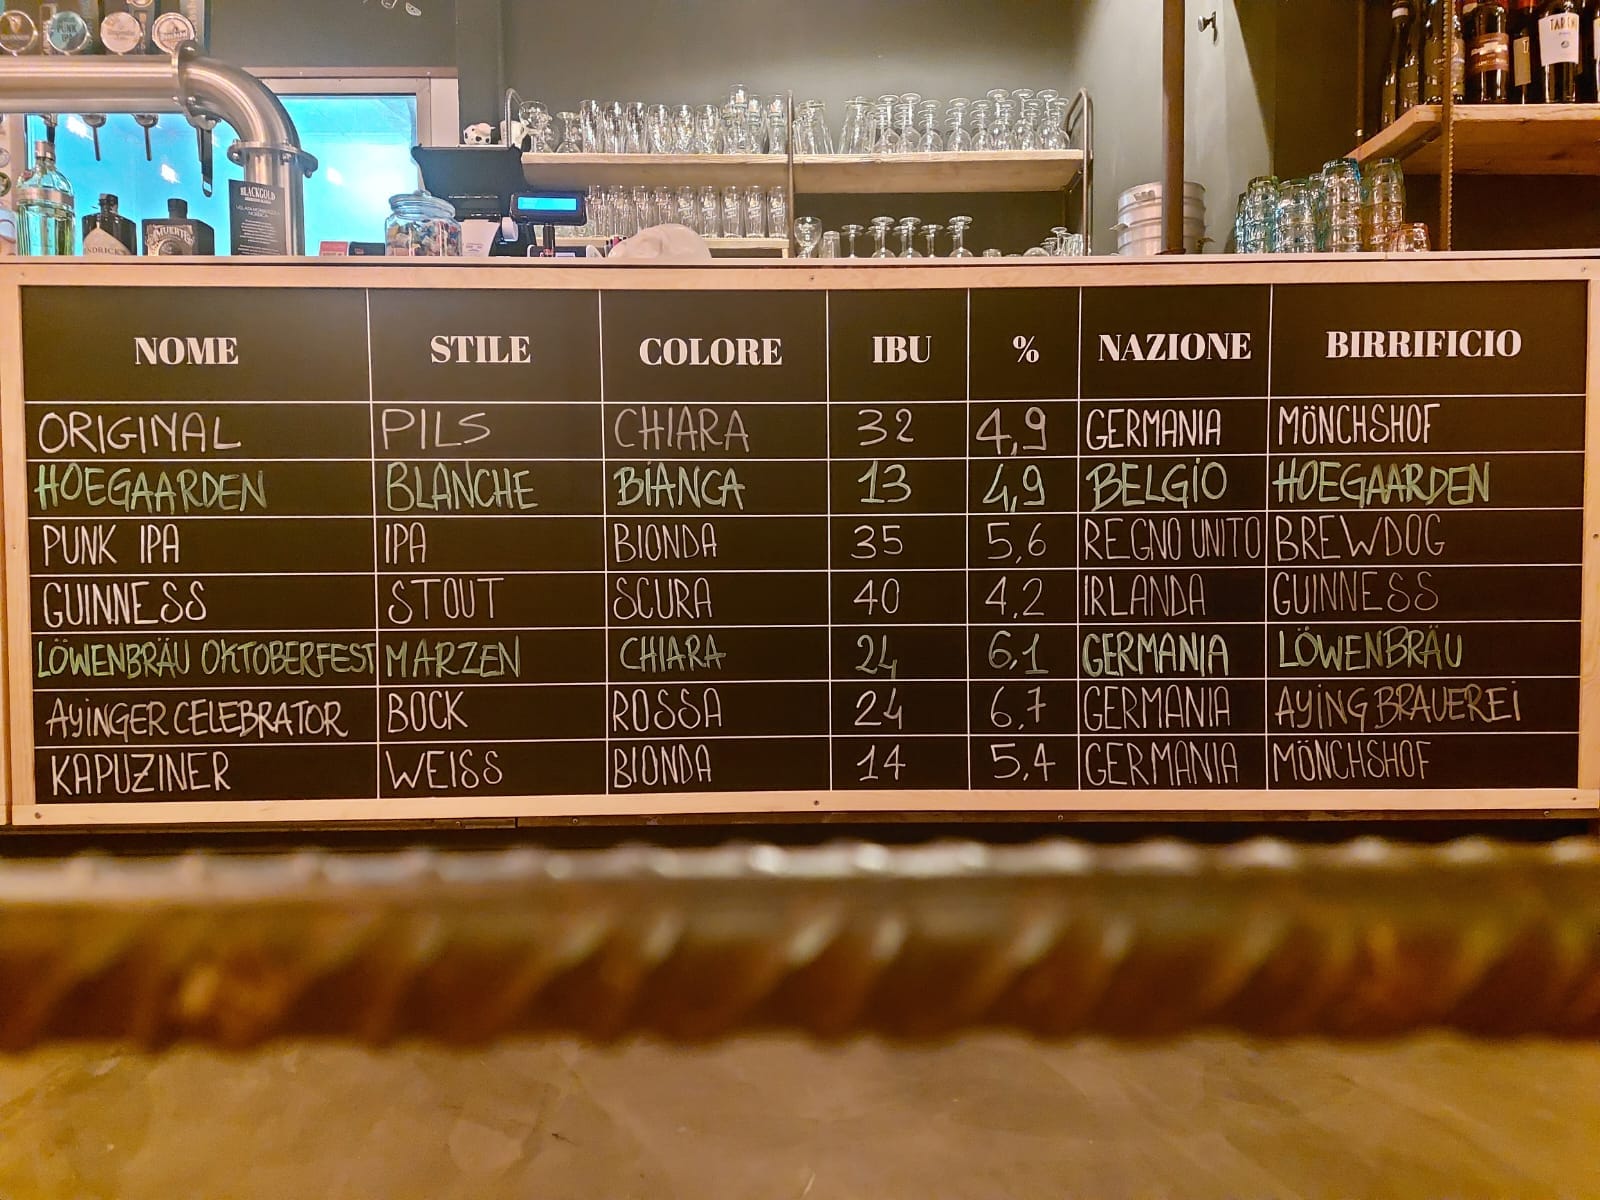 BLACKGOLD
NOME STILE COLORE IBU % NAZIONE BIRRIFICIO
ORIGINAL PILS CHIARA 32 4,9 GERMANIA MÖNCHSHOF
HOEGAARDEN BLANCHE BIANCA 13 4,9 BELGIO HOEGAARDEN
PUNK IPA IPA BIONDA 35 5,6 REGNO UNITO BREWDOG
GUINNESS STOUT SCURA 40 4,2 IRLANDA GUINNESS
LÖWENBRÄU OKTOBERFEST MARZEN CHIARA 24 6,1 GERMANIA LÖWENBRÄU
AYINGER CELEBRATOR BOCK ROSSA 24 6,7 GERMANIA AYING BRAUEREI
KAPUZINER WEISS BIONDA 14 5,4 GERMANIA MÖNCHSHOF